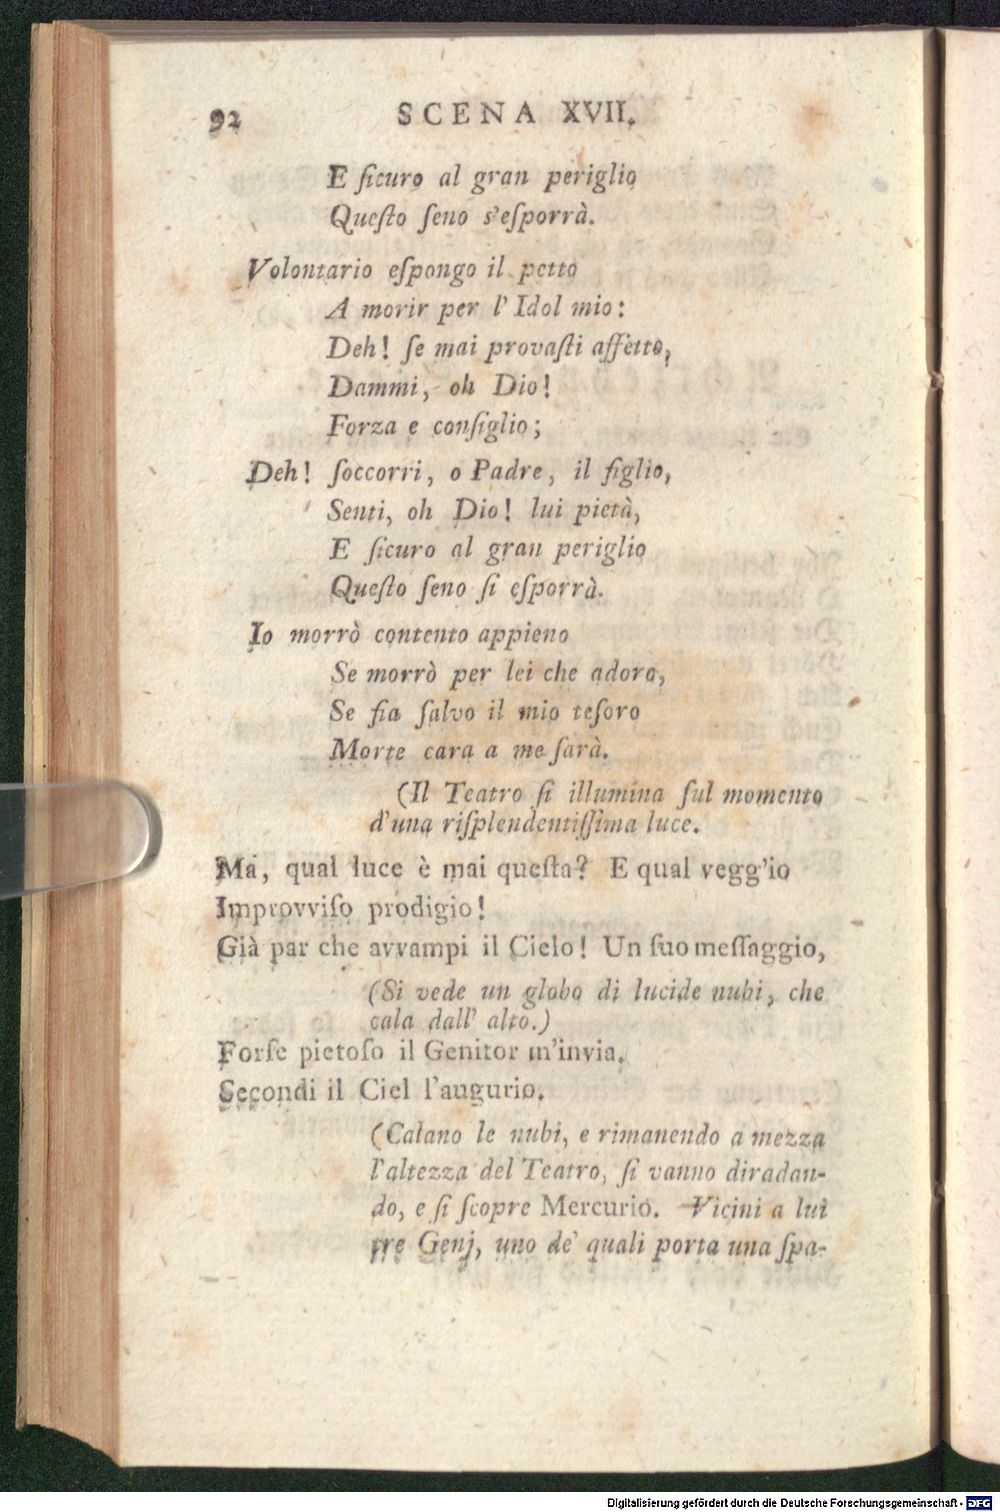 92 SCENA XVII.
E ſicuro al gran periglio
Queſto ſeno s'eſporrà.
Volontario eſpongo il petto
A morir per l' Idol mio:
Deh! ſe mai provaſti affetto,
Dammi, oh Dio!
Forza e conſiglio;
Deh! ſoccorri, o Padre, il figlio,
Senti, oh Dio! lui pietà,
E ſicuro al gran periglio
Queſto ſeno ſi eſporrà.
Io morrò contento appieno
Se morrò per lei che adoro,
Se fia ſalvo il mio teſoro
Morte cara a me ſarà.
(Il Teatro ſi illumina ſul momento
d'una riſplendentiſſima luce.
Ma, qual luce è mai queſta? E qual vegg'io
Improvviſo prodigio!
Già par che avvampi il Cielo! Un ſuo meſſaggio,
(Si vede un globo di lucide nubi, che
cala dall' alto.)
Forſe pietoſo il Genitor m'invia.
Secondi il Ciel l'augurio.
(Calano le nubi, e rimanendo a mezza
l'altezza del Teatro, ſi vanno diradan-
do, e ſi ſcopre Mercurio. Vicini a lui
tre Genj, uno de' quali porta una ſpa-
Digitalisierung gefördert durch die Deutsche Forschungsgemeinschaft - DFG